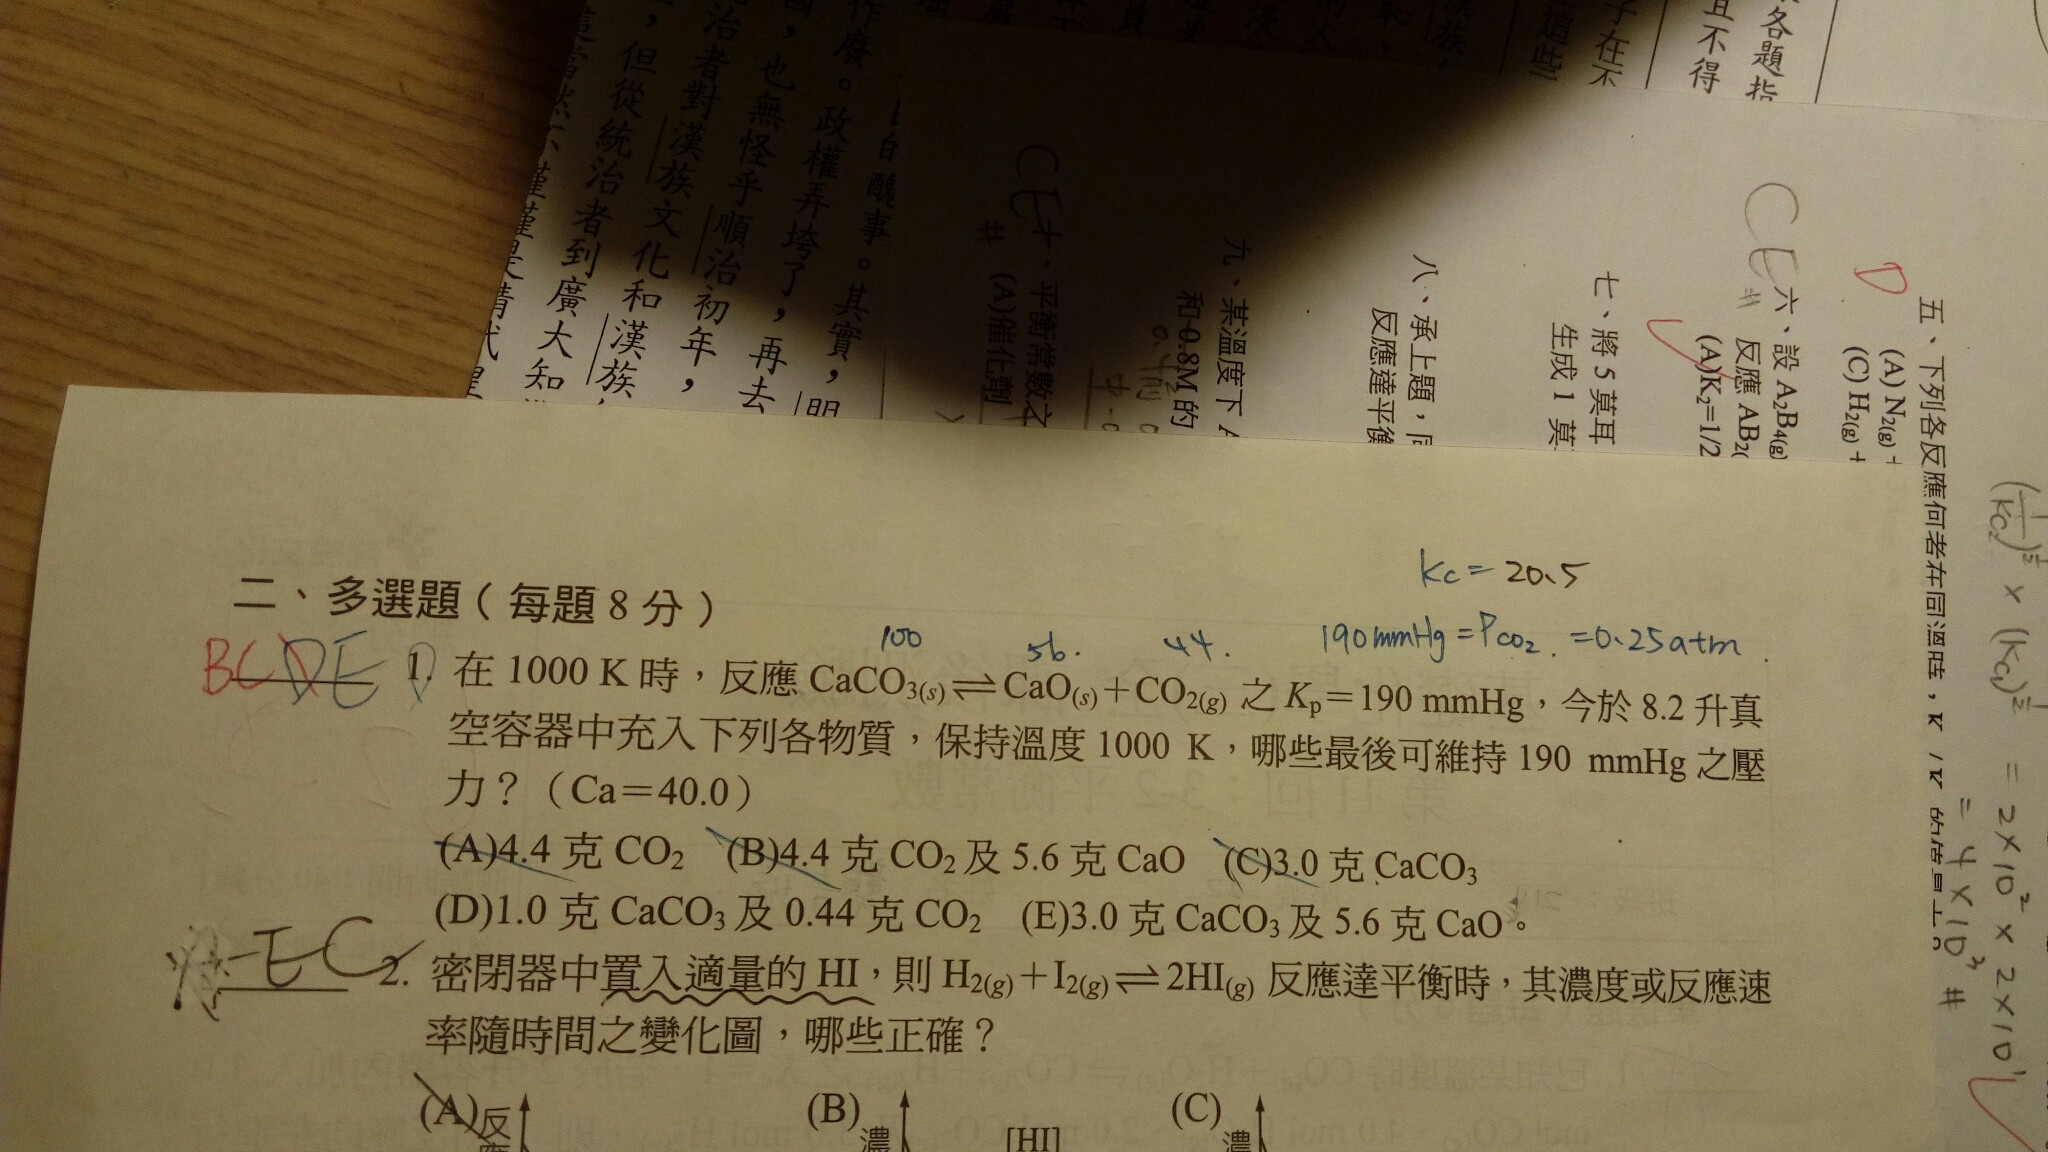 二、多選題（每題8分）
Kc = 20.5
100 56. 44. 190mmHg = Pco₂. = 0.25atm
BCDE 1. 在 1000 K 時，反應 CaCO₃₍s₎⇌CaO₍s₎＋CO₂(g) 之 Kp＝190 mmHg，今於 8.2 升真
空容器中充入下列各物質，保持溫度 1000 K，哪些最後可維持 190 mmHg 之壓
力？（Ca＝40.0）
(A)4.4 克 CO₂ (B)4.4 克 CO₂ 及 5.6 克 CaO (C)3.0 克 CaCO₃
(D)1.0 克 CaCO₃ 及 0.44 克 CO₂ (E)3.0 克 CaCO₃ 及 5.6 克 CaO。
EC 2. 密閉器中置入適量的 HI，則 H₂(g)＋I₂(g)⇌2HI(g) 反應達平衡時，其濃度或反應速
率隨時間之變化圖，哪些正確？
(A)反 (B)濃 [HI] (C)濃
各題指
且不得
子在不
這些
D 五、下列各反應何者在同溫時，
(A) N₂(g) +
(C) H₂(g) +
CE# 六、設 A₂B₄(g)
反應 AB₂(
(A)K₂=1/2
七、將 5 莫耳
生成 1 莫
八、承上題，
反應達平衡
九、某溫度下 A
和 0.8M 的
CE# 十、平衡常數之
(A)催化劑
(1/Kc₂)^½ × (Kc₁)^½ = 2×10² × 2×10¹
= 4×10³ #
的醜事。其實，明
作廢。政權弄垮了，再去
，也無怪乎順治初年，
治者對漢族文化和漢族
，但從統治者到廣大知
僅僅是清代